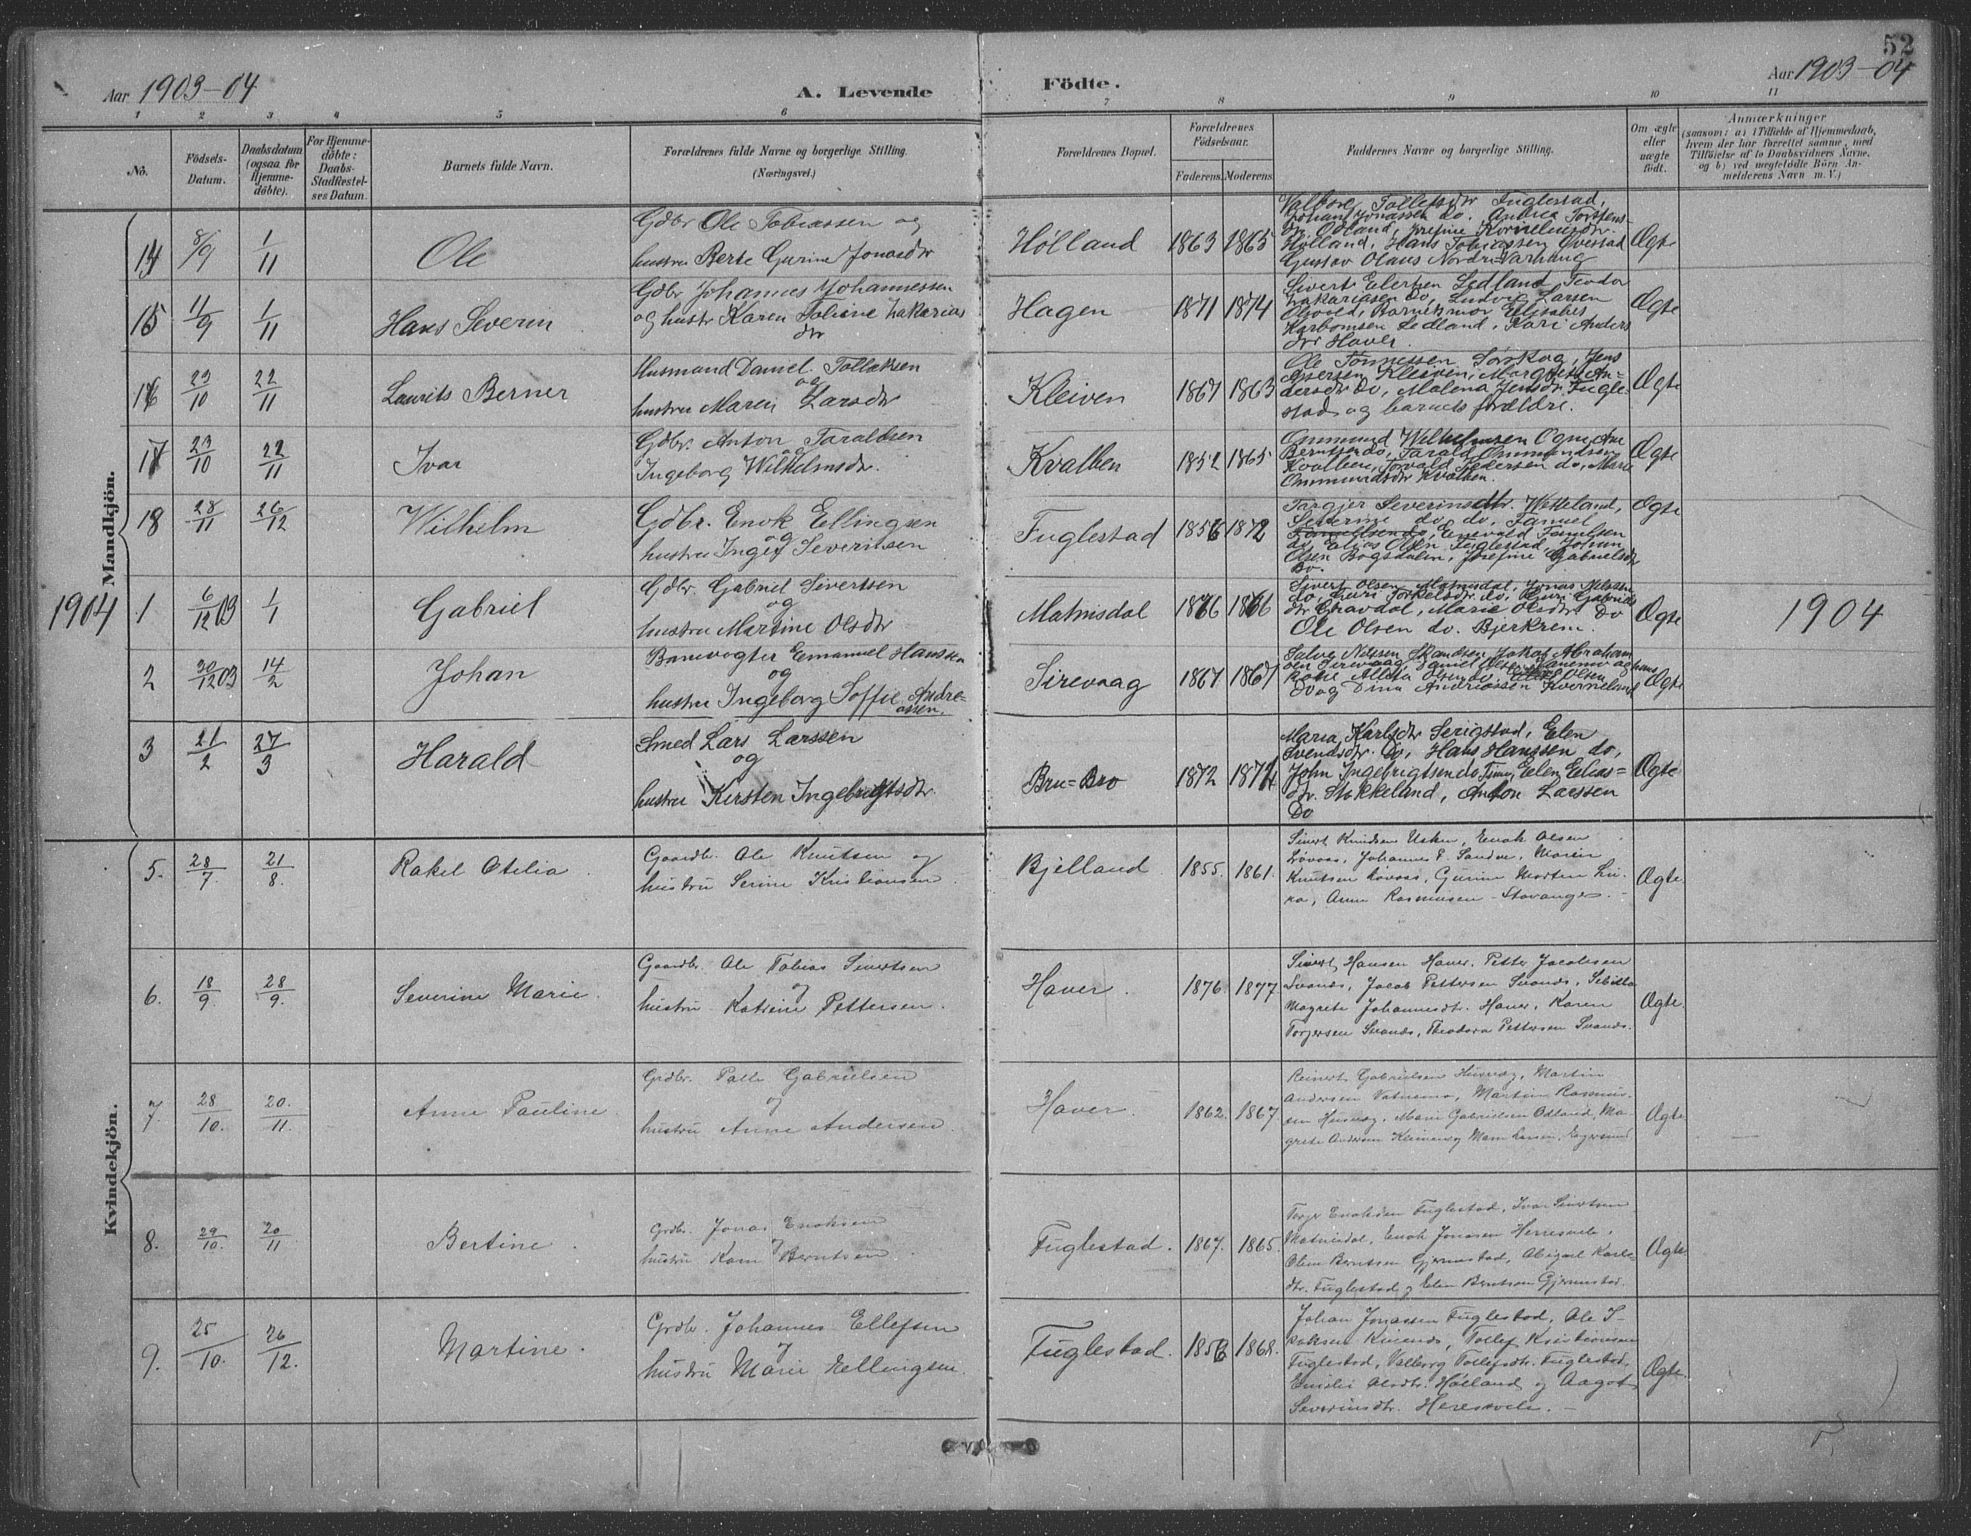 52
Aar 1903-04
A. Levende
Födte.
Aar 1903-04
1 2 3 4 5 6 7 8 9 10 11
No.
Födsels-Datum.
Daabsdatum (ogsaa for Hjemme-döbte).
For Hjemme-döbte: Daabs-Stadfæstel-ses Datum.
Barnets fulde Navn.
Forældrenes fulde Navne og borgerlige Stilling.
(Næringsvei.)
Forældrenes Bopæl.
Forældrenes Födselsaar.
Faderens. Moderens.
Faddernes Navne og borgerlige Stilling.
Om ægte eller uægte födt.
Anmærkninger
(saasom: a) i Tilfælde af Hjemmedaab,
hvem der har forrettet samme, med
Tilföielse af to Daabsvidners Navne,
og b) ved uægtefödte Börn An-
melderens Navn m. V.)
Mandkjön.
14 8/9 1/11 Ole
Gdbr Ole Tobiassen og
hustru Berte Gurine Jonasdtr
Hølland 1863 1865
Valborg Tollefsdtr Fuglestad,
Johan Jonassen do. Andrea Torstens-
dtr. Ødland, Josefine Kornelinsdtr.
Hølland, Hans Tobiassen Øvestad
Gustav Olaus Nordre Varhaug
Ægte
15 11/9 1/11 Hans Severin
Gdbr Johannes Johannessen
og hustr Karen Toline Zakarias
dtr
Hagen 1871 1874
Sivert Elertsen Ledland, Teodor
Zakariasen do, Ludvig Larsen
Ledland, Kari Anders
dtr Haver.
Ægte
16 23/10 22/11 Laurits Berner
Husmand Daniel Tollaksen
og
hustru Maren Larsdtr
Kleiven 1867 1863
Ole Tønnessen Sørskog, Jens
Kleiven, Margrete An-
dersdtr do, Malena Jensdtr. Fugle-
stad og barnets forældre.
Ægte
17 23/10 22/11 Ivar
Gdbr. Anton Taraldsen
og
Ingeborg Wilhelmsdtr.
Kvalben 1852 1865
Ommund Wilhelmsen Ogne, Ane
Berntsen do, Tarald Ommundsen
Kvalben, Torvald Pedersen do, Marie
Ommundsdtr Kvalben.
Ægte
18 28/11 26/12 Wilhelm
Gdbr. Enok Ellingsen
og
hustru Inger Severinsen
Fuglestad 1856 1872
Targjer Severinsdtr. Wetteland,
Severine do, do, Tamuel
do, Elias Olsen Fuglestad,
Olsen Bogsdalen, Josefine Gabrielsdtr
Do.
Ægte
1904
1 6/12 03 1/1 Gabriel
Gdbr. Gabriel Sivertsen
og
hustru Martine Olsdtr
Matnisdal 1866
Sivert Olsen Matnisdal, Jonas Nilssen
do, Guri Torkelsdtr do,
dtr Gravdal, Marie Olsdtr Do
Ole Olsen do. Bjerkrem.
Ægte
1904
2 30/12 03 14/2 Johan
Banevogter Emanuel Hanssen
og
hustru Ingeborg Soffie Andre-
assen.
Sirevaag 1867 1867
Do og Dina Andreassen Kverneland
Ægte
3 21/2 27/3 Harald
Smed Lars Larssen
og
hustru Kirsten Ingebrigtsdtr.
Bru=Bro 1872 1874
Maria Karlsdtr Serigstad, Elen
Svendsdtr. Do, Hans Hanssen do,
John Ingebrigtsen do Time, Elen Elias=
dtr. Stokkeland, Anton Larssen
Do
Ægte
Kvindekjön.
5. 28/7. 21/8. Rakel Otelia.
Gaardbr. Ole Knutsen og
hustru Serine Kristiansen.
Bjelland 1855. 1861.
Sivert Knudsen Usken, Enok Olsen
Løvaas, Johannes P. Sandve, Maren
Knutsen Løvaas, Gurine Morten Lu-
ra, Anne Rasmusen Stavanger.
Ægte.
6. 18/9 28/9. Severine Marie.
Gaardbr. Ole Tobias Sivertsen
og
hustru Katrine Pettersen.
Haver. 1876. 1877
Sivert Hansen Haver. Petter Jacobsen
Svands, Jacob Pettersen Svands, Sibilla
Magrete Johannesdtr. Haver, Karen
Torjersen Svands, Theodora Pettersen Svands.
Ægte.
7. 28/10. 20./11. Anne Pauline.
Grdbr. Palle Gabrielsen
og
hustru Anne Andersen.
Haver. 1862. 1867
Reinert Gabrielsen Husvæg, Martin
Andersen Vatnemo, Martin Rasmus-
sen Husvæg, Marie Gabrielsen Ødland, Ma-
grete Andersen Kleiven og Maren Larsen, Egersund
Ægte.
8. 29/10. 20/11 Bertine.
Grdbr. Jonas Enoksen
og
hustru Karen Berntsen.
Fuglestad. 1867. 1865.
Torger Enoksen Fuglestad, Ivar Sivertsen
Matnisdal, Enok Jonasen Herresvele,
Olene Berntsen Gjermestad, Abigael Karls-
dtr. Fuglestad og Elen Berntsen Gjermestad.
Ægte.
9. 25/10. 26/12. Martine.
Grdbr. Johannes Ellefsen
og
hustru Marie Ellingsen.
Fuglestad. 1856 1868.
Johan Jonassen Fuglestad, Ole I-
saksen Kinends, Tollef Kristiansen
Fuglestad, Valborg Tollefsdtr. Fuglestad,
Emilie Olsdtr. Hølland og Aagot
Severinsdtr. Heresvele.
Ægte.